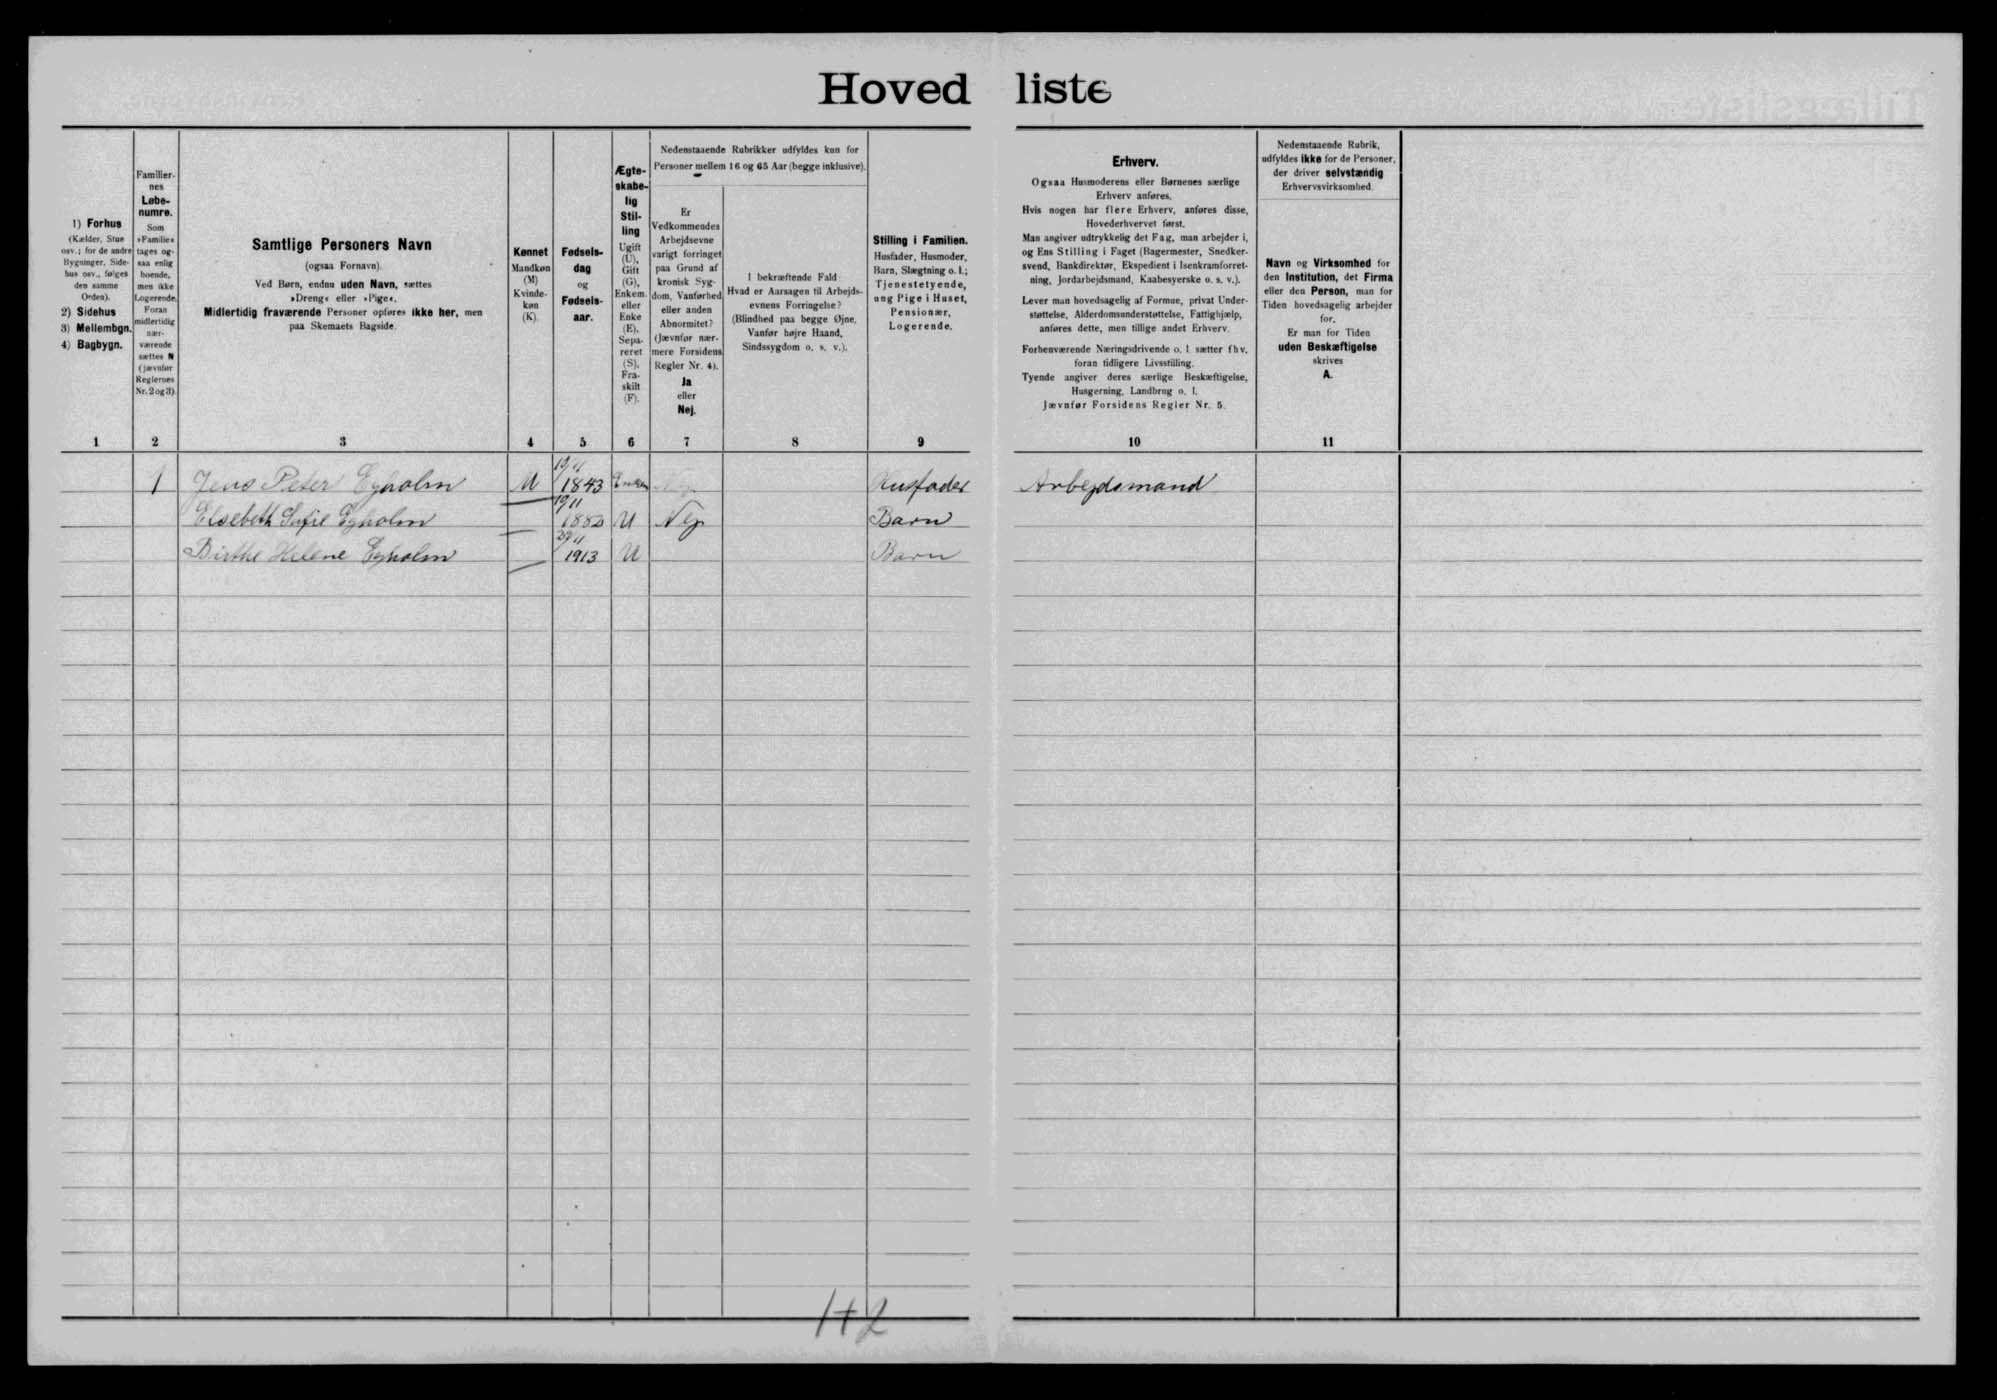 Hoved liste
1) Forhus
(Kælder, Stue
osv.; for de andre
Bygninger, Side-
hus osv., følges
den samme
Orden).
2) Sidehus
3) Mellembgn.
4) Bagbygn.
Familier-
nes
Løbe-
numre.
Som
»Familie«
tages og-
saa enlig
boende,
men ikke
Logerende.
Foran
midlertidig
nær-
værende
sættes N
(jævnfør
Reglernes
Nr. 2 og 3)
Samtlige Personers Navn
(ogsaa Fornavn).
Ved Børn, endnu uden Navn, sættes
»Dreng« eller »Pige«.
Midlertidig fraværende Personer opføres ikke her, men
paa Skemaets Bagside.
Kønnet
Mandkøn
(M)
Kvinde-
køn
(K).
Fødsels-
dag
og
Fødsels-
aar.
Ægte-
skabe-
lig
Stil-
ling
Ugift
(U),
Gift
(G),
Enkem.
eller
Enke
(E),
Sepa-
reret
(S),
Fra-
skilt
(F).
Nedenstaaende Rubrikker udfyldes kun for
Personer mellem 16 og 65 Aar (begge inklusive).
Er
Vedkommendes
Arbejdsevne
varigt forringet
paa Grund af
kronisk Syg-
dom, Vanførhed
eller anden
Abnormitet?
(Jævnfør nær-
mere Forsidens
Regler Nr. 4).
Ja
eller
Nej.
I bekræftende Fald:
Hvad er Aarsagen til Arbejds-
evnens Forringelse?
(Blindhed paa begge Øjne,
Vanfør højre Haand,
Sindssygdom o. s. v.).
Stilling i Familien.
Husfader, Husmoder,
Barn, Slægtning o. l.;
Tjenestetyende,
ung Pige i Huset,
Pensionær,
Logerende.
Erhverv.
Ogsaa Husmoderens eller Børnenes særlige
Erhverv anføres.
Hvis nogen har flere Erhverv, anføres disse,
Hovederhvervet først.
Man angiver udtrykkelig det Fag, man arbejder i,
og Ens Stilling i Faget (Bagermester, Snedker-
svend, Bankdirektør, Ekspedient i Isenkramforret-
ning, Jordarbejdsmand, Kaabesyerske o. s. v.).
Lever man hovedsagelig af Formue, privat Under-
støttelse, Alderdomsunderstøttelse, Fattighjælp,
anføres dette, men tillige andet Erhverv.
Forhenværende Næringsdrivende o. l. sætter fhv.
foran tidligere Livsstilling.
Tyende angiver deres særlige Beskæftigelse,
Husgerning, Landbrug o. l.
Jævnfør Forsidens Regler Nr. 5.
Nedenstaaende Rubrik,
udfyldes ikke for de Personer,
der driver selvstændig
Erhvervsvirksomhed.
Navn og Virksomhed for
den Institution, det Firma
eller den Person, man for
Tiden hovedsagelig arbejder
for.
Er man for Tiden
uden Beskæftigelse
skrives
A.
1 2 3 4 5 6 7 8 9 10 11
1 Jens Peter Egholm M 1843 Enkem Nej Husfader Arbejdsmand
Elsebeth Sofie Egholm 19/11 U Nej Barn
Birthe Helene Egholm 29/11 1913 U Barn
1+2